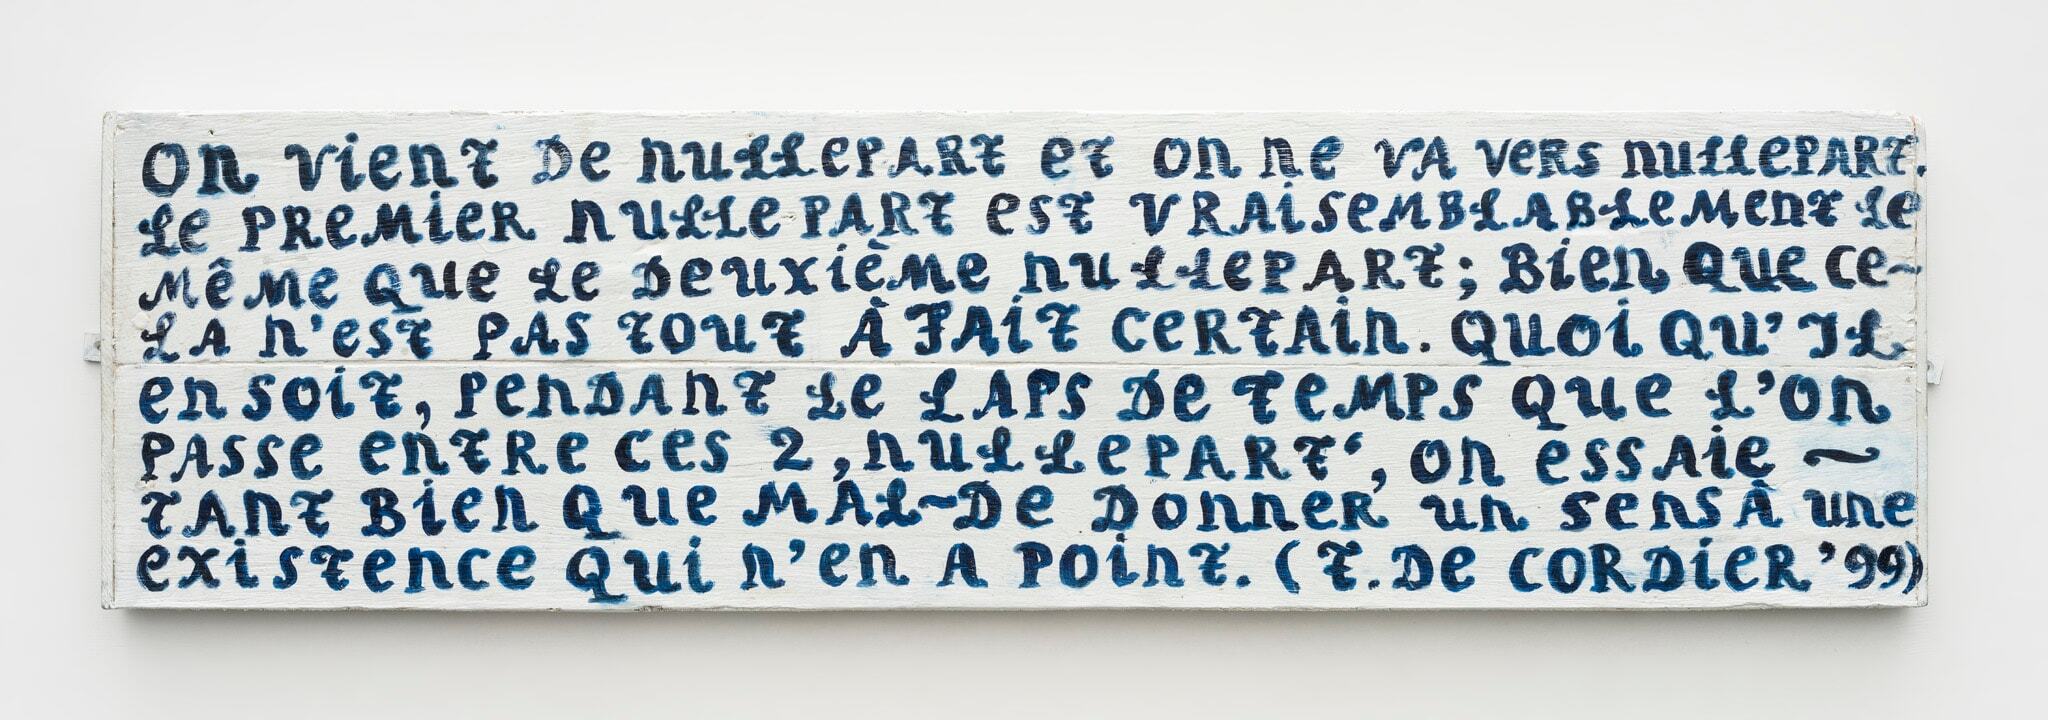 On vient DE nuLLEPART et on ne VA vers nuLLEPART.
Le PREMIER nuLLEPART est VRAISEMBLABLEMENT Le
MêMe Que Le Deuxième nuLLEPART; Bien Que Ce~
LA n'est PAS tout À FAIT CERTAIN. Quoi Qu'IL
en soit, PENDANT Le LAPS De TEMPS Que L'On
PASSE entre ces 2 ,nuLLEPART‘, on essAie ~
TANT Bien Que MAL~De Donner un sens À une
existence Qui n'en A Point. (T. De CORDIER '99)